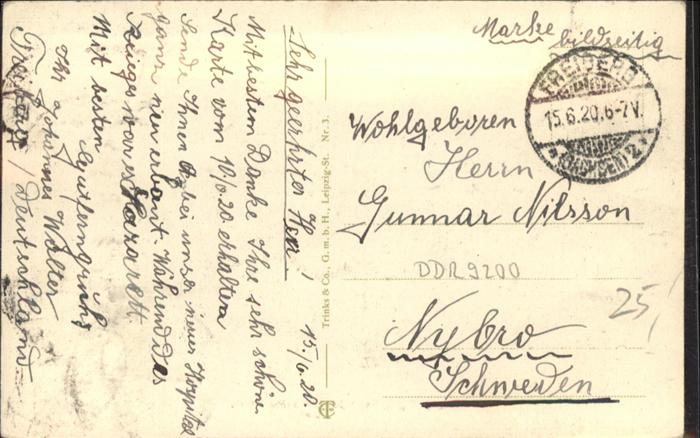 Marke
bildseitig
FREIBERG
15.6.20.6-7V.
* (SACHSEN) 2 *
Wohlgeboren
Herrn
Gunnar Nilsson
DDR9200
25,
Nybro
Schweden
Trinks & Co., G. m. b. H., Leipzig-St. Nr. 3.
15./6.20.
Sehr geehrter Herr!
Mit bestem Danke Ihre sehr schöne
Karte vom 10/6.20 erhalten
Sende Ihnen bei unser neues Hospital
ganz neu erbaut. Während des
Krieges war es Lazarett.
Mit besten
Ihr Johannes Walter
Freiberg / Deutschland